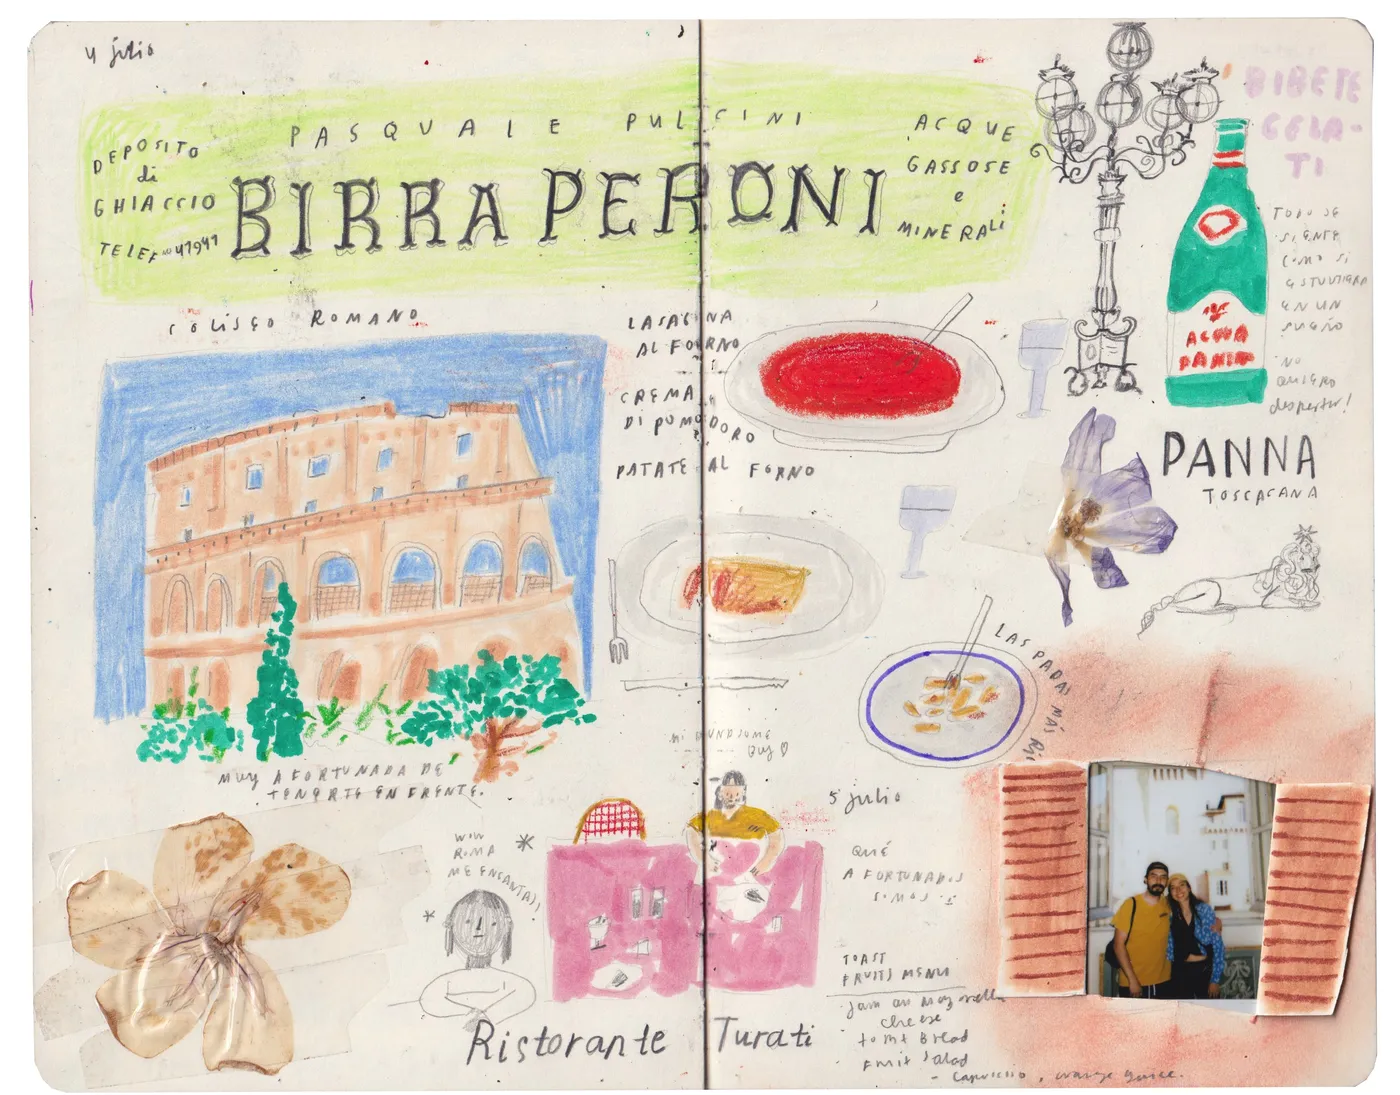 4 julio
PASQUALE PULCINI
DEPOSITO
di
GHIACCIO
TELEF no 41941
BIRRA PERONI
ACQUE
GASSOSE
e
MINERALI
COLISEO ROMANO
MUY AFORTUNADA DE
TENERTE EN FRENTE.
LASAGNA
AL FORNO
CREMA
DI POMODORO
PATATE AL FORNO
BIBETE
GELA-
TI
TODO SE
SIENTE
COMO SI
ESTUVIERA
EN UN
SUEÑO
NO
QUIERO
despertar!
ACQUA
PANNA
PANNA
TOSCAGANA
LAS PAPAS MÁS
MI HANDSOME
BUY
WIW
ROMA
ME ENCANTA))!
Ristorante Turati
5 julio
QUÉ
AFORTUNADOS
SOMOS :)
TOAST
FRUITS MENU
Jam an Mozorella
cheese
toast Bread
Fruit Salad
- Capuccio, orange guice.